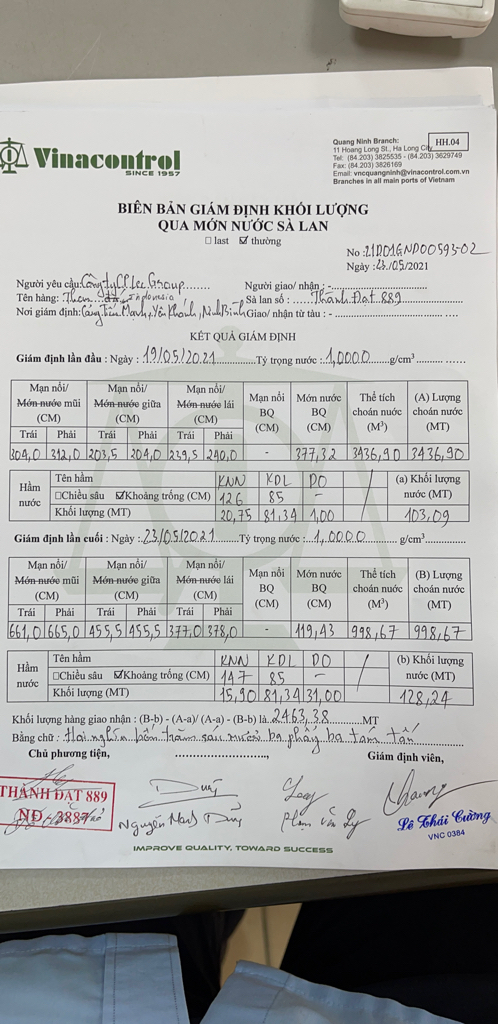 Vinacontrol
SINCE 1957
Quang Ninh Branch:
11 Hoang Long St., Ha Long City
Tel: (84.203) 3825535 - (84.203) 3629749
Fax: (84.203) 3826169
Email: vncquangninh@vinacontrol.com.vn
Branches in all main ports of Vietnam
HH.04
BIÊN BẢN GIÁM ĐỊNH KHỐI LƯỢNG
QUA MỚN NƯỚC SÀ LAN
☐ last ☑ thường
No : 21D01GND00593-02
Ngày : 23/05/2021
Người yêu cầu: Công ty CP Lec Group Người giao/ nhận : -
Tên hàng: Than đá Indonesia Sà lan số : Thành Đạt 889
Nơi giám định: Cảng Tiến Mạnh, Yên Khánh, Ninh Bình Giao/ nhận từ tàu : -
KẾT QUẢ GIÁM ĐỊNH
Giám định lần đầu : Ngày : 19/05/2021 Tỷ trọng nước : 1,0000 g/cm³
Mạn nổi/ Mớn nước mũi (CM) Mạn nổi/ Mớn nước giữa (CM) Mạn nổi/ Mớn nước lái (CM) Mạn nổi BQ (CM) Mớn nước BQ (CM) Thể tích choán nước (M³) (A) Lượng choán nước (MT)
Trái Phải Trái Phải Trái Phải
304,0 312,0 203,5 204,0 239,5 240,0 - 377,32 3436,90 3436,90
Hầm nước Tên hầm KNN KDL DO (a) Khối lượng nước (MT)
☐Chiều sâu ☑Khoảng trống (CM) 126 85 -
Khối lượng (MT) 20,75 81,34 1,00 103,09
Giám định lần cuối : Ngày : 23/05/2021 Tỷ trọng nước : 1,0000 g/cm³
Mạn nổi/ Mớn nước mũi (CM) Mạn nổi/ Mớn nước giữa (CM) Mạn nổi/ Mớn nước lái (CM) Mạn nổi BQ (CM) Mớn nước BQ (CM) Thể tích choán nước (M³) (B) Lượng choán nước (MT)
Trái Phải Trái Phải Trái Phải
661,0 665,0 455,5 455,5 377,0 378,0 - 119,43 998,67 998,67
Hầm nước Tên hầm KNN KDL DO (b) Khối lượng nước (MT)
☐Chiều sâu ☑Khoảng trống (CM) 147 85 -
Khối lượng (MT) 15,90 81,34 31,00 128,24
Khối lượng hàng giao nhận : (B-b) - (A-a)/ (A-a) - (B-b) là 2463,38 MT
Bằng chữ : Hai nghìn bốn trăm sáu mươi ba phẩy ba tám tấn
Chủ phương tiện, Giám định viên,
THÀNH ĐẠT 889
NĐ 3887
Nguyễn Mạnh Duy
Phạm Văn
Lê Thái Cường
VNC 0384
IMPROVE QUALITY, TOWARD SUCCESS